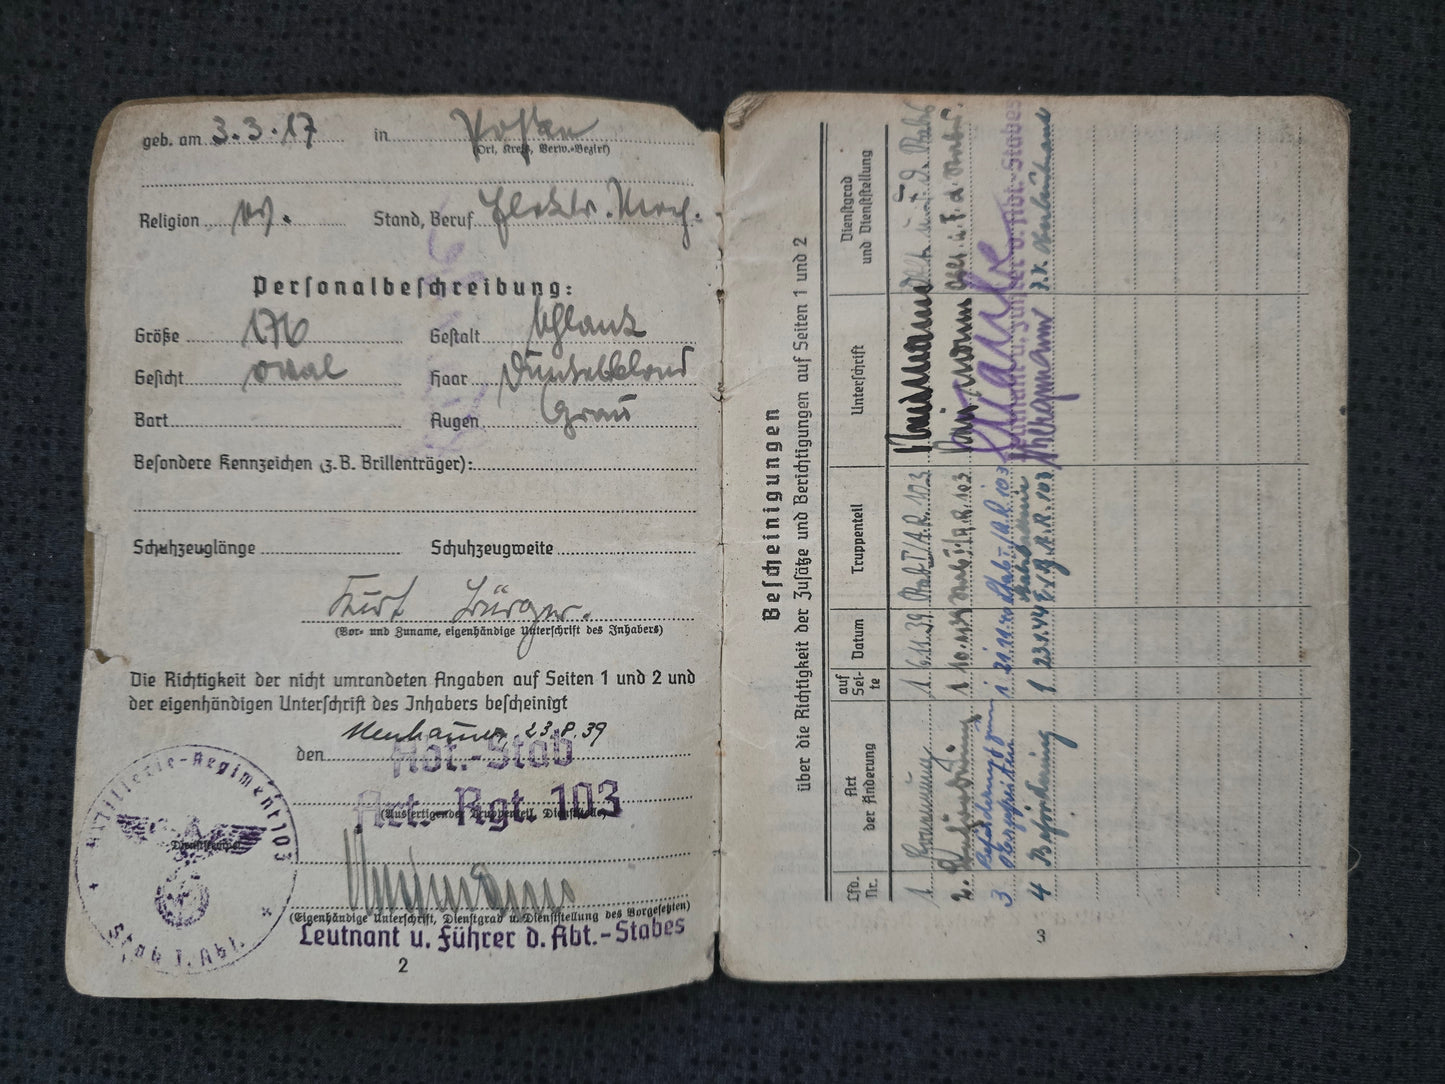 geb. am 3.3.17 in
(Ort, Kreis, Verw.-Bezirk)
Religion ev. Stand, Beruf Elektr. Mech.
Personalbeschreibung:
Größe 176 Gestalt schlank
Gesicht oval Haar Dunkelblond
Bart Augen Grau
Besondere Kennzeichen (z.B. Brillenträger):
Schuhzeuglänge Schuhzeugweite
Kurt Bürger.
(Vor- und Zuname, eigenhändige Unterschrift des Inhabers)
Die Richtigkeit der nicht umrandeten Angaben auf Seiten 1 und 2 und
der eigenhändigen Unterschrift des Inhabers bescheinigt
den 23.8.39
Abt.-Stab
Art. Rgt. 103
(Ausfertigender Truppenteil, Dienststelle)
Artillerie-Regiment 103
Dienststempel
Stab I. Abt.
(Eigenhändige Unterschrift, Dienstgrad u. Dienststellung des Vorgesetzten)
Leutnant u. Führer d. Abt.-Stabes
2
Bescheinigungen
über die Richtigkeit der Zusätze und Berichtigungen auf Seiten 1 und 2
Lfd. Nr. Art der Änderung auf Seite Datum Truppenteil Unterschrift Dienstgrad und Dienststellung
1. Ernennung 1. 6.11.39 Stab I/A.R. 103
2. 1 Stab I/A.R. 103
3 Beförderung zum 1 21.11.40 Stab I./A.R. 103
Obergefreiten Leutnant u. Führer d. Abt.-Stabes
4 Beförderung 1 23.1.44 A.R. 103
3